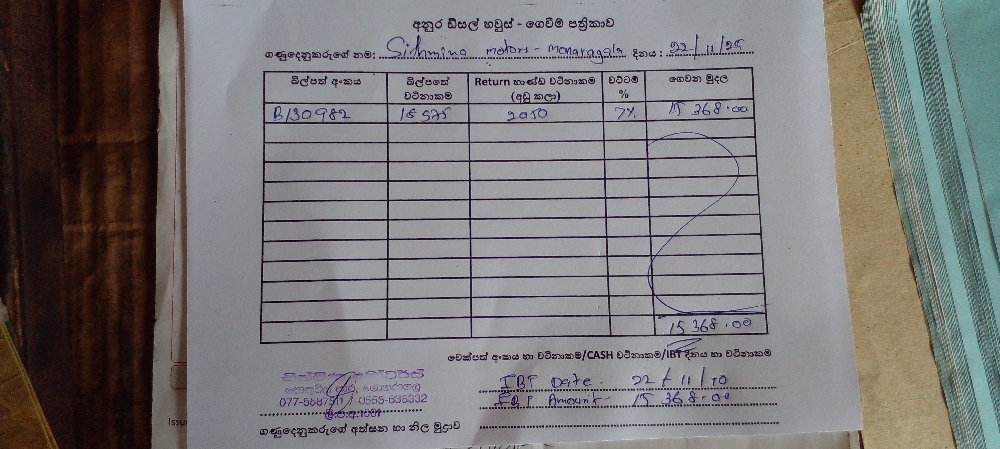 අනුර ඩීසල් හවුස් - ගෙවීම් පත්‍රිකාව
ගණුදෙනුකරුගේ නම: Sithmina motors - monaragala දිනය : 22/11/25
බිල්පත් අංකය බිල්පතේ වටිනාකම Return භාණ්ඩ වටිනාකම (අඩු කලා) වට්ටම් % ගෙවන මුදල
B130982 18575 2050 7% 15 368.00
15 368.00
චෙක්පත් අංකය හා වටිනාකම/CASH වටිනාකම/IBT දිනය හා වටිනාකම
IBT Date - 22/11/10
IBT Amount - 15 368.00
ගණුදෙනුකරුගේ අත්සන හා නිල මුද්‍රාව
Issu